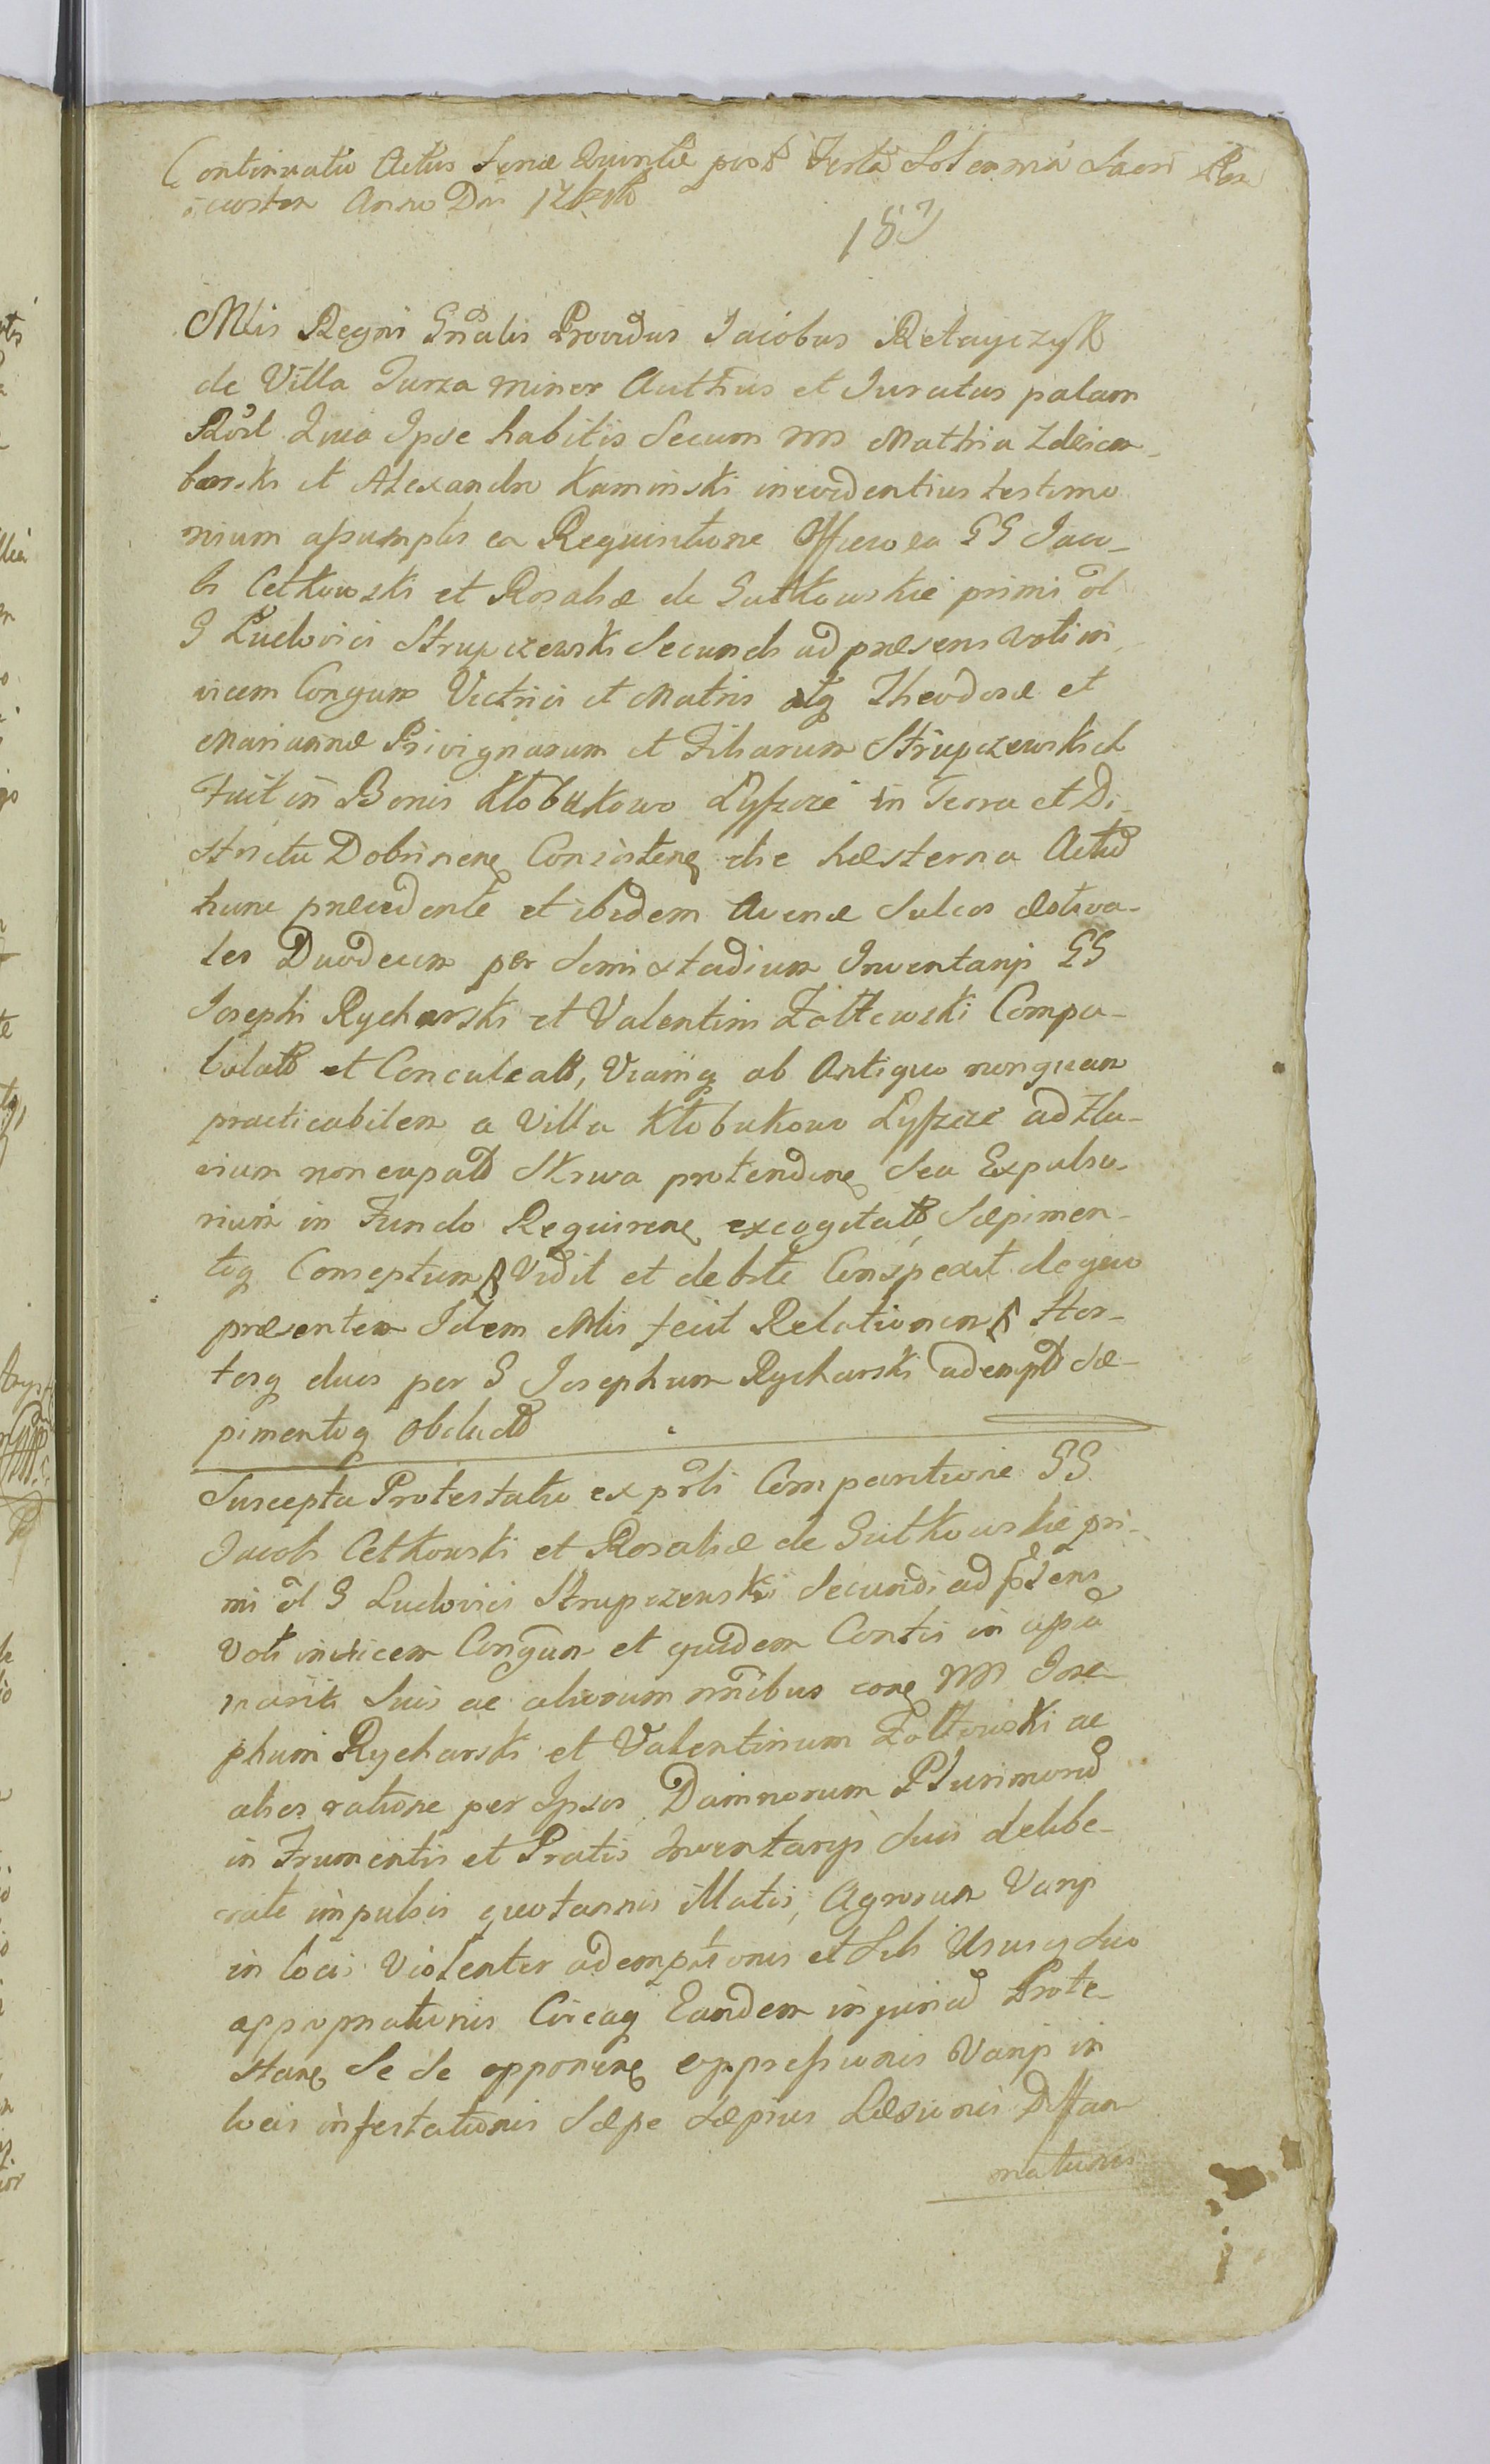 Continuatio Actus Feriae Quintae post Festa Solenna Sacri Pen
tecostes Anno Dni
183
Mlis Regni Gnalis Providus Jacobus Retayczyk
de Villa Turza minor Authus et Juratus palam
Rdit Quia Ipse habitis Secum nn Mathia
et Alexandro Kaminski in evidentius testimo
nium assumptis ea Requisitione Officiosa GG Jaco-
bi Cetkowski et Rosaliae de Sutkowskie primi ol
G Ludovici Strupczewski Secundi ad praesens voti in
vicem Conjgum Victrici et Matris atq Theodorae et
Mariannae Privignarum et Filiarum Strupczewskich
Fuit in Bonis Kłobukowo Łyszcze in Terra et Di-
strictu Dobrinen Consisten die hesterna Actum
hunc praecedente et ibidem Avenae Sulcos aestiva-
les Duodecim per Semistadium Inventarij GG
Josephi Rycharski et Valentini Żołtowski Compa-
bulatos et Conculcatos, Viamq ab Antiquo nunquam
practicabilem a Villa Kłobukowo Łyszcze ad Flu-
vium noncupatum Skrwa protenden Seu Expulso-
rium in Fundo Requiren excogitatum Saepimen-
toq Conseptum Vidit et debite Conspexit de quo
praesentem Idem Mlis fecit Relationem Hor-
tosq duos per G Josephum Rycharski ademptos Sae-
pimentoq obductos
Suscepta Protestatio ex psti Comparitione GG
Jacobi Cetkowski et Rosaliae de Sutkowskie pri-
mi ol G Ludovici Strupczewski Secundi ad psens
Voti invicem Conjgum et quidem Contis in apa
mariti Sui ac aliorum nnibus con nn Jose-
phum Rycharski et Valentinum Żołtowski ac
alios ratione per Ipsos Damnorum Plurimorum
in Frumentis et Pratis Inventarijs Suis delibe-
rate impulsis quotannis illatis, Agrorum Varijs
in locis Violenter ademptionis et Sibi Usuiq Suo
appropriationis Circaq Eandem injuriam Prote-
stan Se Se opponen oppressionis Varijs in
locis infestationis Saepe Saepius Laesionis Diffam
mationis